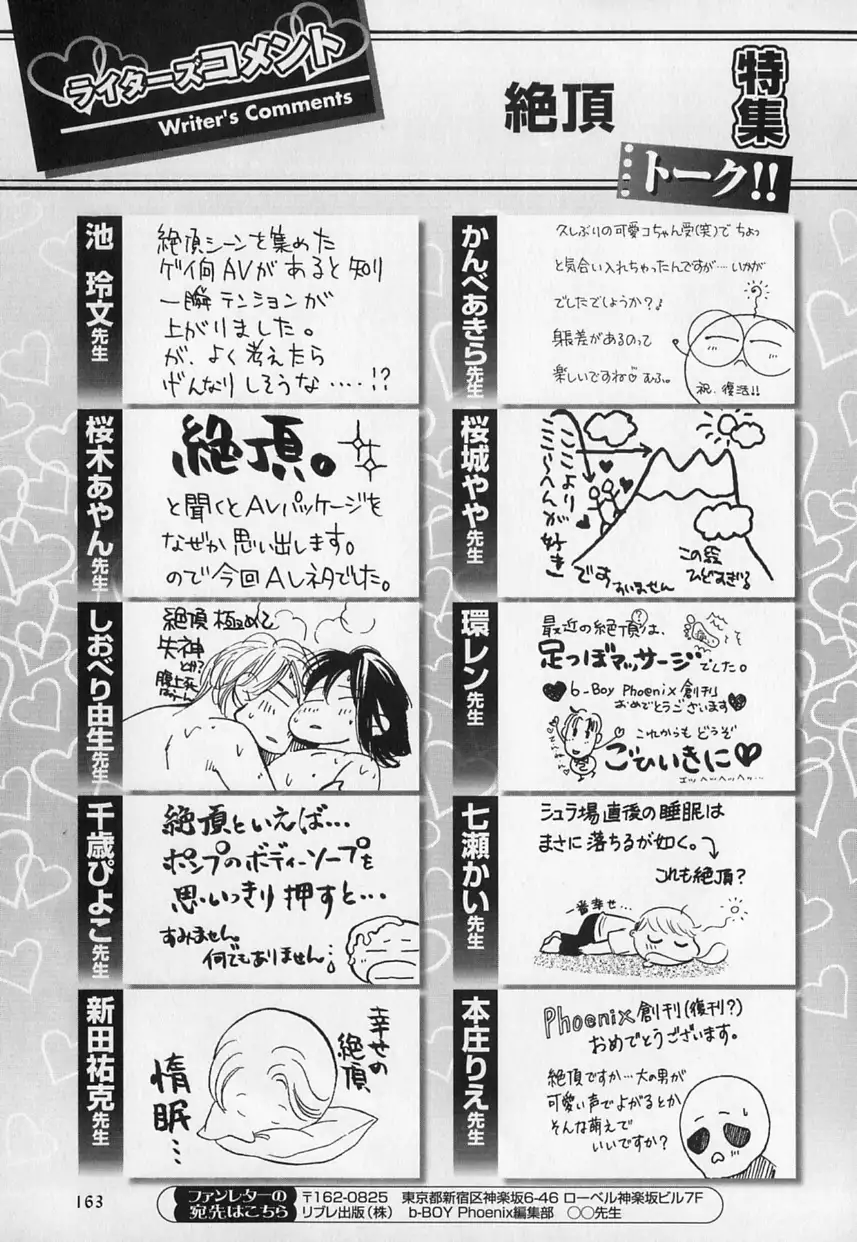 ライターズコメント
Writer's Comments
特集
絶頂
トーク!!
かんべあきら先生
久しぶりの可愛コちゃん受(笑)で ちょっ
と気合い入れちゃったんですが…いかが
でしたでしょうか?♪
身長差があるのって
楽しいですね♡むふ。
祝・復活!!
池 玲文先生
絶頂シーンを集めた
ゲイ向AVがあると知り
一瞬テンションが
上がりました。
が、よく考えたら
げんなりしそうな……!?
桜城やや先生
ここより
ここらへんが
好き
です
すいません
この絵
ひどすぎる
桜木あやん先生
絶頂。
と聞くとAVパッケージを
なぜか思い出します。
ので今回AVネタでした。
環レン先生
最近の絶頂?は、
足つぼマッサージでした。
♥b-Boy Phoenix創刊
おめでとうございます♥
これからも どうぞ
ごひいきに♥
しおべり由生先生
絶頂 極めて
失神
とか?
腹上死
千歳ぴよこ先生
絶頂といえば…
ポンプのボディーソープを
思いっきり 押すと…
すみません。
何でもありません…
七瀬かい先生
シュラ場直後の睡眠は
まさに落ちるが如く。
これも絶頂?
一番幸せ…
新田祐克先生
幸せの
絶頂
惰眠…
本庄りえ先生
Phoenix創刊(復刊?)
おめでとうございます。
絶頂ですか…大の男が
可愛い声でよがるとか
そんな萌えで
いいですか?
163
ファンレターの
宛先はこちら
〒162-0825 東京都新宿区神楽坂6-46 ローベル神楽坂ビル7F
リブレ出版(株) b-BOY Phoenix編集部 〇〇先生